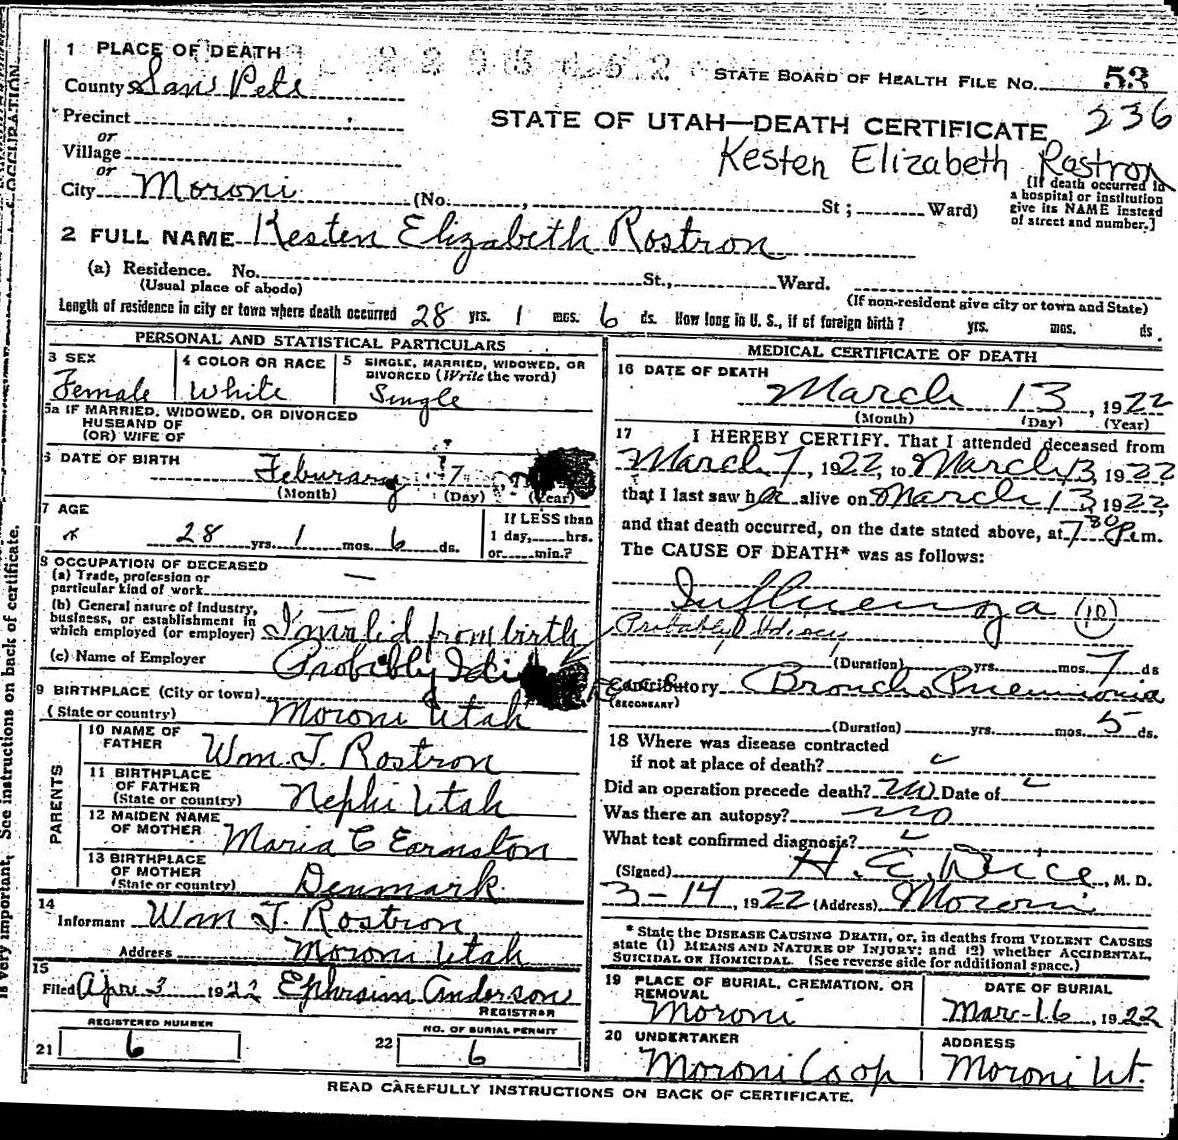 1 PLACE OF DEATH
STATE BOARD OF HEALTH FILE NO. 53
County San Pete
236
Precinct
STATE OF UTAH—DEATH CERTIFICATE
or
Village
Kesten Elizabeth Rostron
or
City Moroni (No. , St ; Ward)
(If death occurred in
a hospital or institution
give its NAME instead
of street and number.]
2 FULL NAME Kesten Elizabeth Rostron
(a) Residence. No. St., Ward.
(Usual place of abodo)
(If non-resident give city or town and State)
Length of residence in city er town where death occurred 28 yrs. 1 mos. 6 ds. How long in U. S., if of foreign birth ? yrs. mos. ds.
PERSONAL AND STATISTICAL PARTICULARS
3 SEX
Female
4 COLOR OR RACE
White
5 SINGLE, MARRIED, WIDOWED, OR
DIVORCED (Write the word)
Single
5a IF MARRIED, WIDOWED, OR DIVORCED
HUSBAND OF
(OR) WIFE OF
6 DATE OF BIRTH
Feburary 7
(Month) (Day) (Year)
7 AGE
28 yrs. 1 mos. 6 ds.
If LESS than
1 day, hrs.
or min.?
8 OCCUPATION OF DECEASED
(a) Trade, profession or
particular kind of work —
(b) General nature of Industry,
business, or establishment in
which employed (or employer) Invalid from birth
(c) Name of Employer Probably
9 BIRTHPLACE (City or town)
(State or country) Moroni Utah
PARENTS
10 NAME OF
FATHER Wm. J. Rostron
11 BIRTHPLACE
OF FATHER
(State or country) Nephi Utah
12 MAIDEN NAME
OF MOTHER Maria C Earnston
13 BIRTHPLACE
OF MOTHER
(State or country) Denmark
14
Informant Wm J. Rostron
Address Moroni Utah
15
Filed Apri 3 1922 Ephraim Anderson
REGISTRAR
REGISTERED NUMBER
21 6
NO. OF BURIAL PERMIT
22 6
MEDICAL CERTIFICATE OF DEATH
16 DATE OF DEATH
March 13, 1922
(Month) (Day) (Year)
17 I HEREBY CERTIFY. That I attended deceased from
March 7, 1922, to March 13, 1922
that I last saw her alive on March 13, 1922,
and that death occurred, on the date stated above, at 7 30 P.m.
The CAUSE OF DEATH* was as follows:
Influenza (10)
Probably Idiocy
(Duration) yrs. mos. 7 ds
Contributory Broncho Pneumonia
(SECONDARY)
(Duration) yrs. mos. 5 ds.
18 Where was disease contracted
if not at place of death?
Did an operation precede death? no Date of
Was there an autopsy? no
What test confirmed diagnosis?
(Signed) H. C. Wice, M. D.
3-14, 1922 (Address) Moroni
* State the DISEASE CAUSING DEATH, or, in deaths from VIOLENT CAUSES
state (1) MEANS AND NATURE OF INJURY; and (2) whether ACCIDENTAL,
SUICIDAL OR HOMICIDAL. (See reverse side for additional space.)
19 PLACE OF BURIAL, CREMATION, OR
REMOVAL
Moroni
DATE OF BURIAL
Mar-16, 1922
20 UNDERTAKER
Moroni Co op
ADDRESS
Moroni Ut.
READ CAREFULLY INSTRUCTIONS ON BACK OF CERTIFICATE.
is very important. See instructions on back of certificate.
OCCUPATION